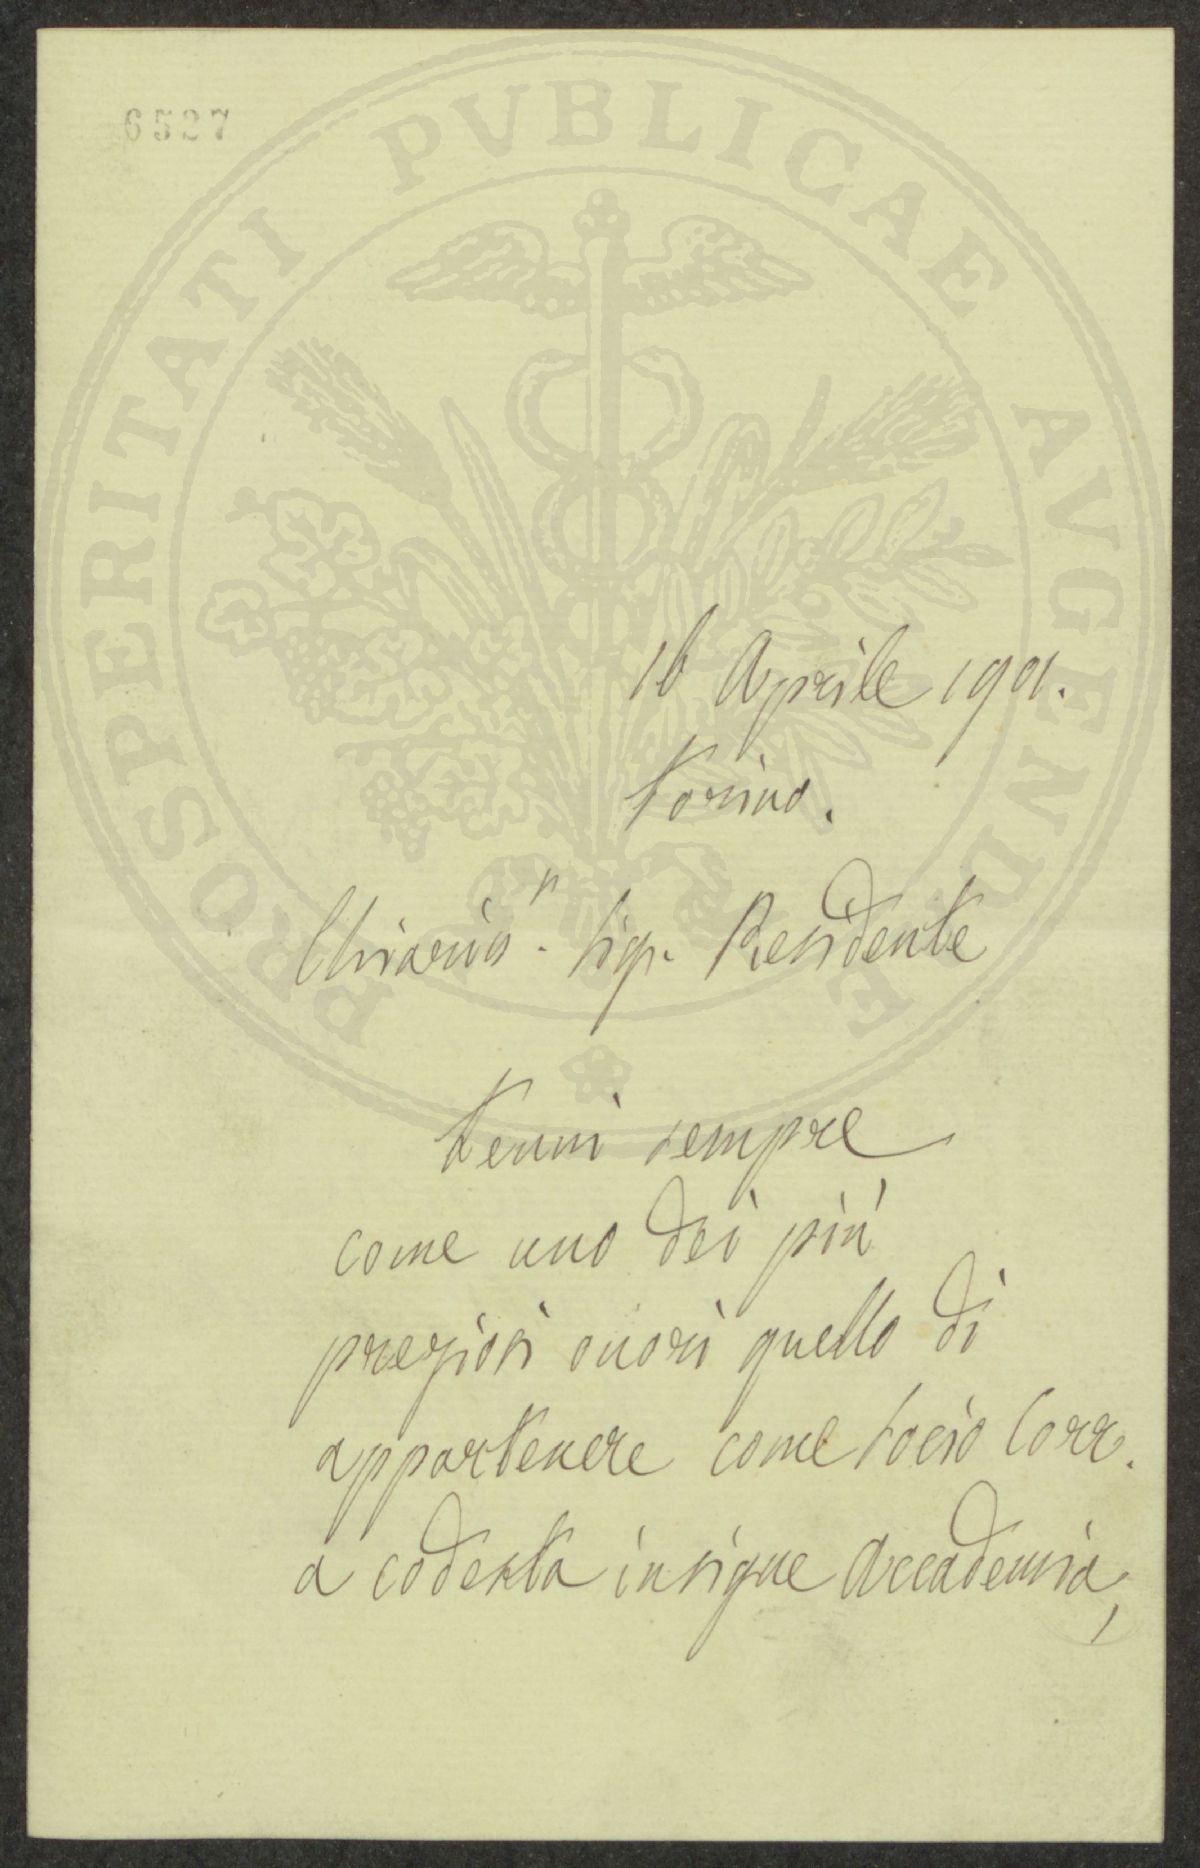 6527
PROSPERITATI PUBLICAE AUGENDAE
16 Aprile 1901.
Torino.
Chiariss.mo Sig. Presidente
Tenni sempre
come uno dei più
preziosi onori quello di
appartenere come socio Corr.
a codesta insigne Accademia,